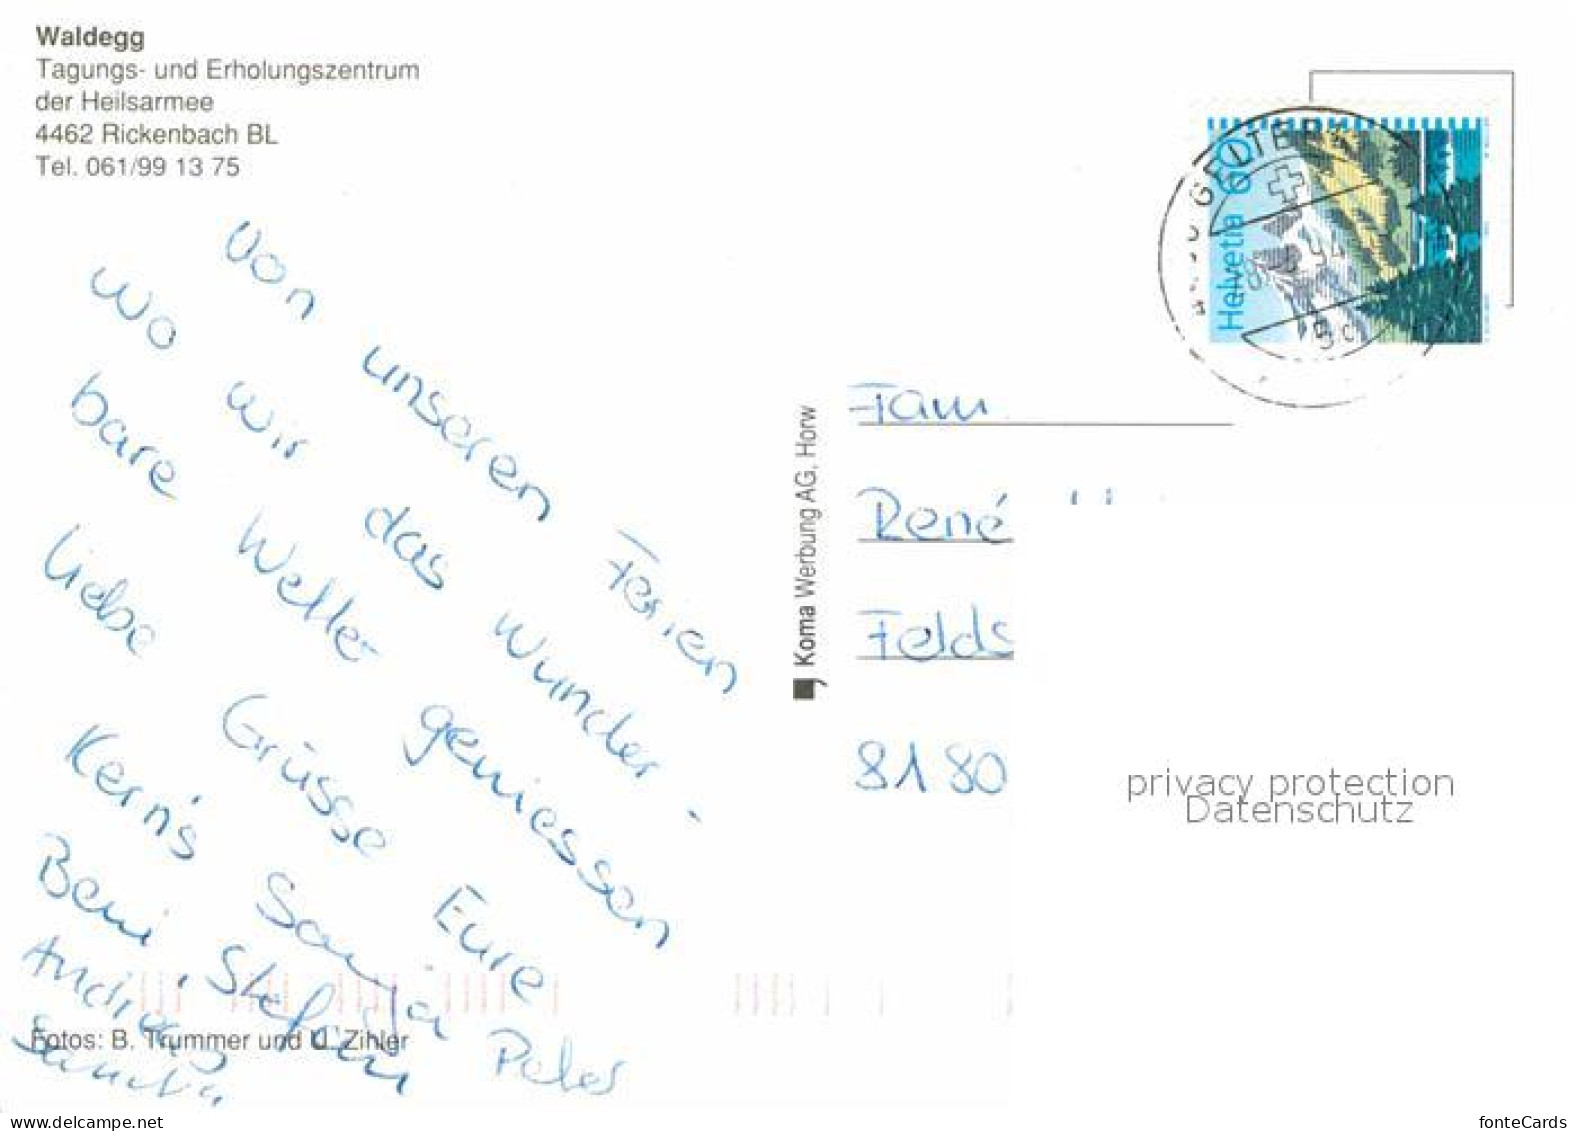 Waldegg
Tagungs- und Erholungszentrum
der Heilsarmee
4462 Rickenbach BL
Tel. 061/99 13 75
GELTERK
Helvetia 60
Von unseren Ferien
wo wir das wunder-
bare Wetter geniessen
Liebe Grüsse Eure
Kern's Sonja Peter
Beni, Stefan
Andreas
Fotos: B. Trummer und U. Zihler
Koma Werbung AG, Horw
Fam
René
Felds
8180
privacy protection
Datenschutz
www.delcampe.net
fonteCards